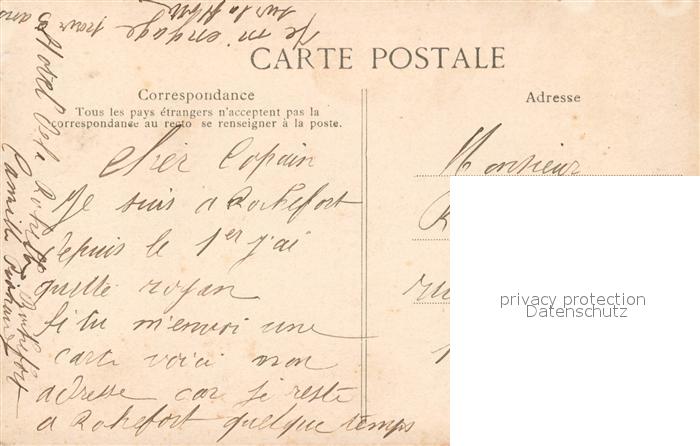 CARTE POSTALE
Correspondance
Tous les pays étrangers n'acceptent pas la
correspondance au recto se renseigner à la poste.
Adresse
Cher Copain
Je suis a Rochefort
depuis le 1er j'ai
quitté royan
Si tu m'envoi une
carte voici mon
adresse car je reste
a Rochefort quelque temps
Monsieur
R
rue
privacy protection
Datenschutz
Hotel Rochefort
Camille
Je m'engage pour 3 ans
sur la